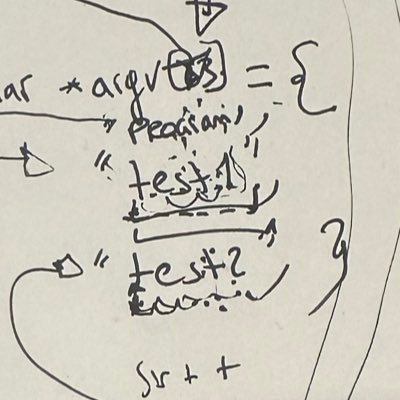 ar *argv[3] = {
"program",
"test1",
"test2" }